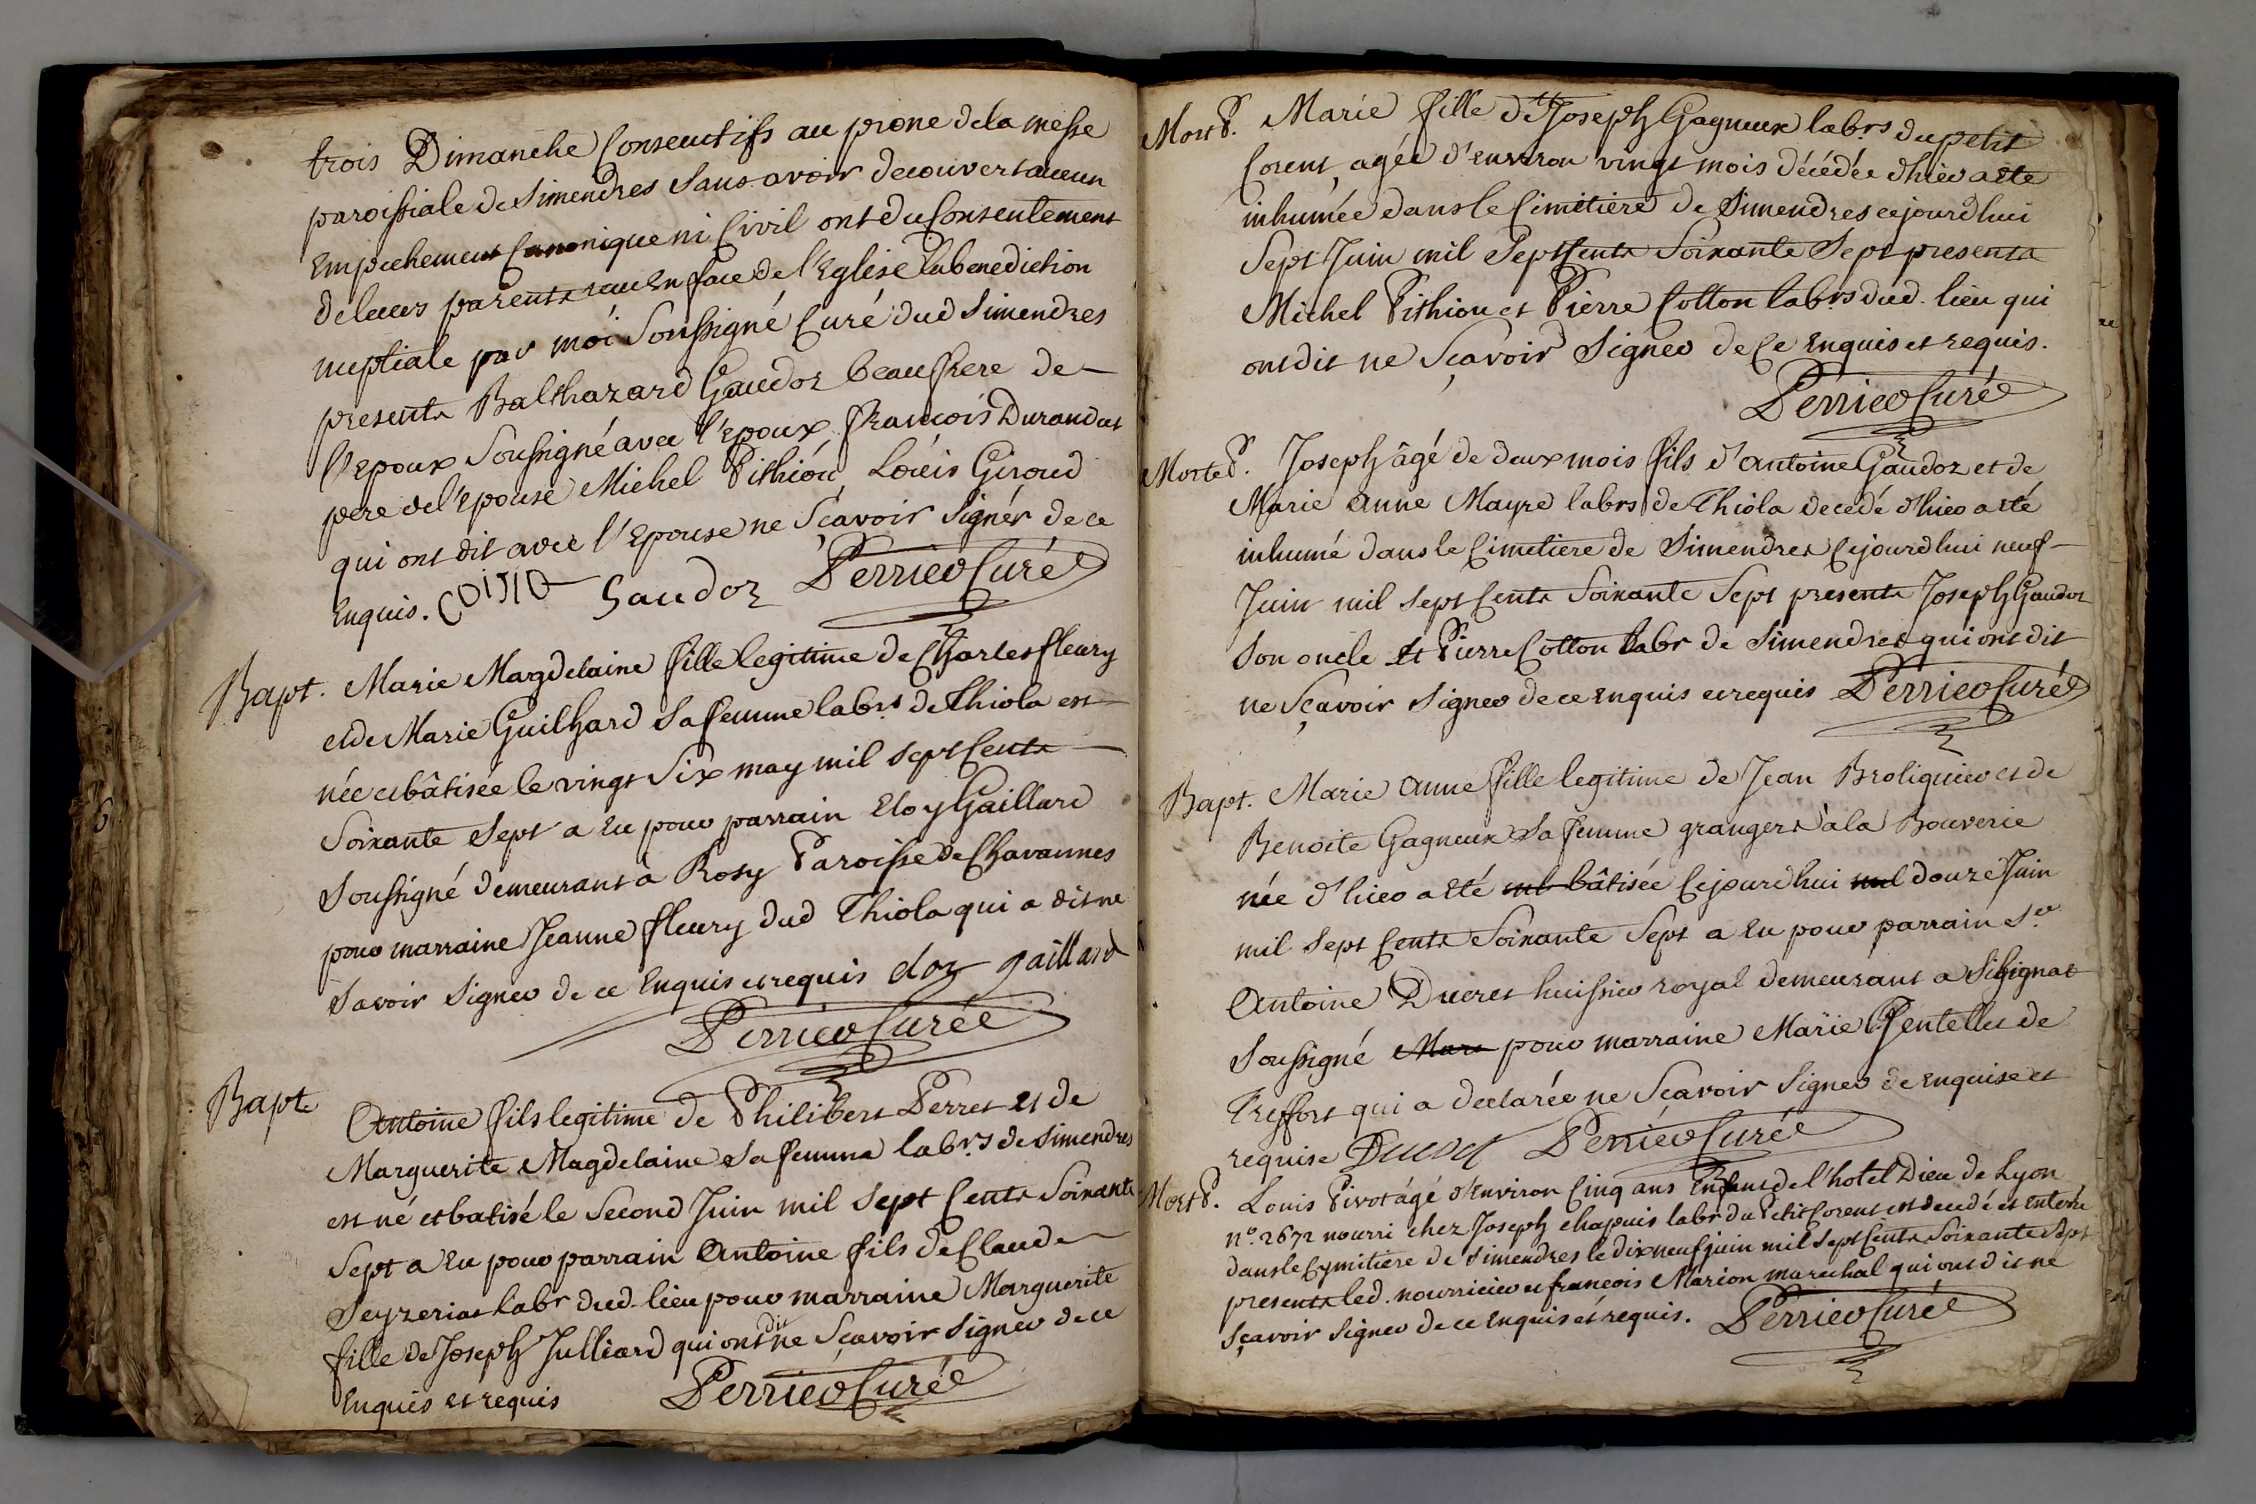 trois Dimanche Consecutifs au prone dela messe
paroissiale de Simendres Sans avoir decouvert aucun
Empechement Canonique ni Civil ont du Consentement
deleurs parents recu En face de l'Eglise la benediction
nuptiale par moi Soussigné Curé dud Simendres
presents Balthazard Gaudoz beaufrere de
l'epoux Soussigné avec l'epoux, francois Durandet
pere del'epouse Michel Pithiou, Louis Giroud
qui ont dit avec l'Epouse ne Sçavoir Signer de ce
Enquis. Gaudoz Perrier Curé
Bapt. Marie Magdelaine fille legitime de Charles fleury
et de Marie Guilhard Sa femme labrs de Thiola est
née et bâtisée le vingt Six may mil Sept Cents
Soixante Sept a Eu pour parrain Eloy Gaillard
Soussigné demeurant à Rosy Paroisse de Chavannes
pour marraine Jeanne fleury dud Thiola qui a dit ne
Savoir Signer de ce Enquis et requis eloy gaillard
Perrier Curé
Bapt. Antoine fils legitime de Philibert Perret et de
Marguerite Magdelaine Sa femme labrs de Simendres
est né et batisé le Second Juin mil Sept Cents Soixante
Sept a Eu pour parrain Antoine fils de Claude
Seyzeriat labr dud. lieu pour marraine Marguerite
fille de Joseph Julliard qui ont dit ne Sçavoir Signer de ce
Enquis et requis Perrier Curé
Mort P. Marie fille de Joseph Gagneux labrs du petit
Corent, agée d'environ vingt mois décédée d'hier a ete
inhumée dans le Cimetiere de Simendres cejourdhui
Sept Juin mil Sept Cents Soixante Sept presents
Michel Pithiou et Pierre Cotton labrs dud. lieu qui
ont dit ne Sçavoir Signer de Ce Enquis et requis.
Perrier Curé
Morte P. Joseph âgé de deux mois fils d'Antoine Gaudoz et de
Marie Anne Mayre labrs de Thiola decedé d'hier a eté
inhumé dans le Cimetiere de Simendres Cejourdhui neuf
Juin mil Sept Cents Soixante Sept presents Joseph Gaudoz
Son oncle Et Pierre Cotton labr de Simendres qui ont dit
ne Sçavoir Signer de ce Enquis et requis Perrier Curé
Bapt. Marie Anne fille legitime de Jean Broliquier et de
Benoite Gagneux Sa femme grangers à la Bouverie
née d'hier a Eté bâtisée Cejourdhui mil douze Juin
mil Sept Cents Soixante Sept a Eu pour parrain Sr
Antoine Ducret huissier royal demeurant a Silignat
Soussigné Mara pour marraine Marie Pentellet de
Treffort qui a declarée ne Sçavoir Signer de Enquise et
requise Ducret Perrier Curé
Mort P. Louis Pivot âgé d'Environ Cinq ans Enfant de l'hotel Dieu de Lyon
n.º 2672 nourri chez Joseph chapuis labr du Petit Corent est decedé et enterré
dans le Cymitiere de Simendres le dixneuf juin mil Sept Cents Soixante Sept
presents led. nourricier et francois Marion marechal qui ont dit ne
Sçavoir Signer de ce Enquis et requis. Perrier Curé